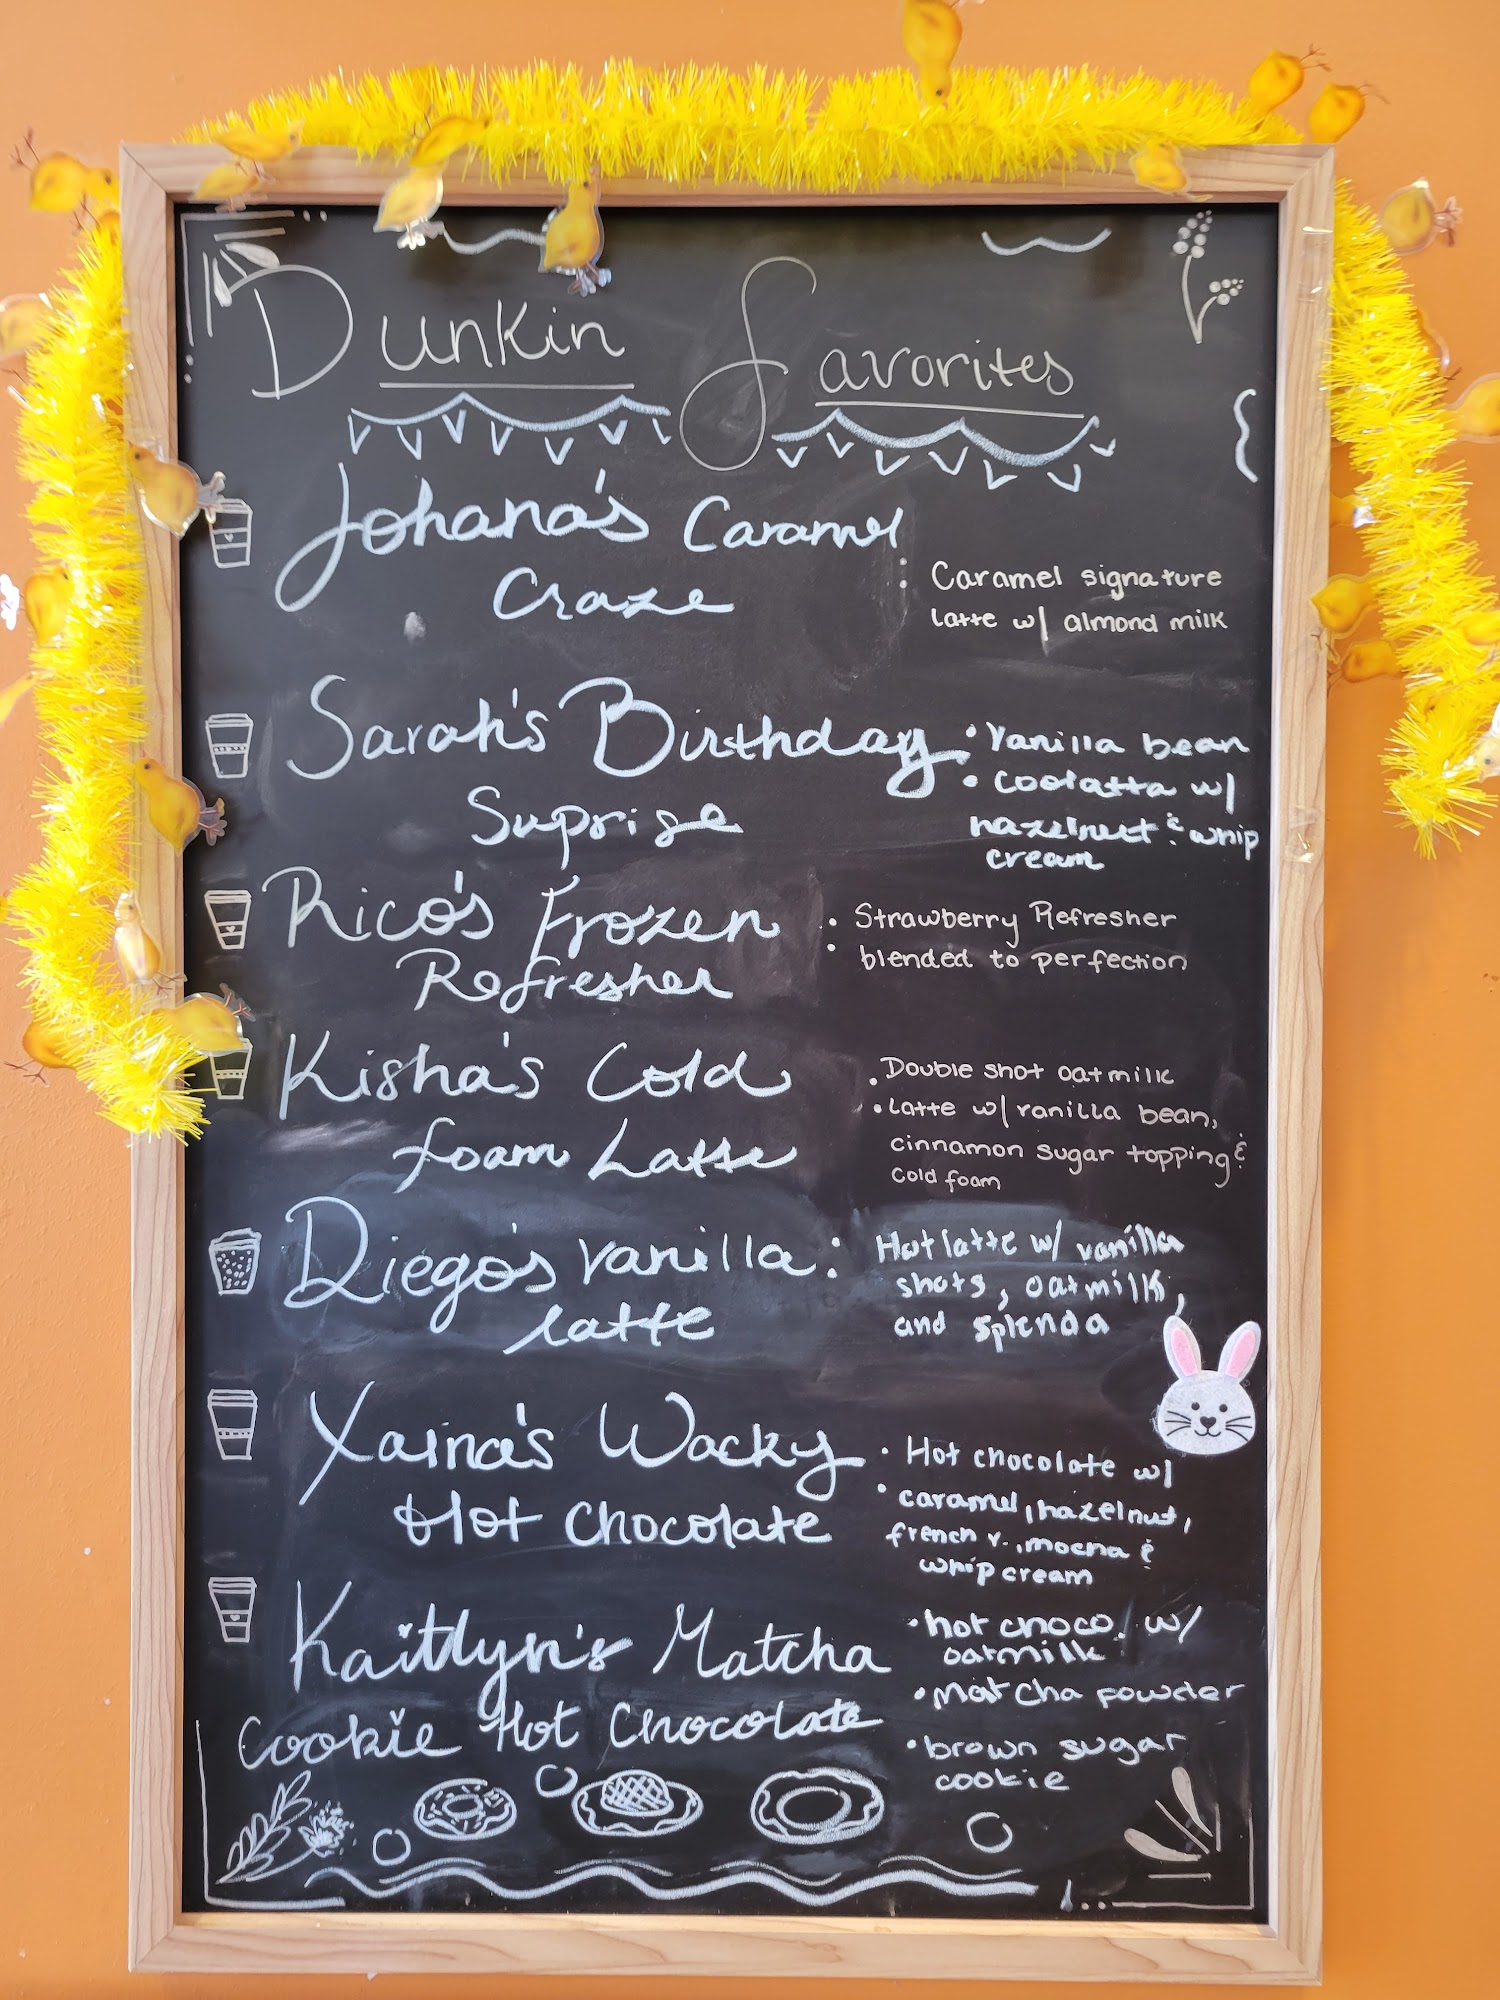 Dunkin Favorites
Johana's Caramel
Craze
: Caramel signature
latte w/ almond milk
Sarah's Birthday
Suprise
• Vanilla bean
• Coolatta w/
hazelnut & whip
cream
Rico's Frozen
Refresher
• Strawberry Refresher
• blended to perfection
Kisha's Cold
foam Latte
• Double shot oatmilk
• latte w/ vanilla bean,
cinnamon sugar topping &
cold foam
Diego's vanilla :
latte
Hot latte w/ vanilla
shots, oatmilk,
and splenda
Xaina's Wacky
Hot Chocolate
• Hot chocolate w/
• caramel, hazelnut,
french v., mocha &
whip cream
Kaitlyn's Matcha
Cookie Hot Chocolate
• hot choco. w/
oatmilk
• matcha powder
• brown sugar
cookie